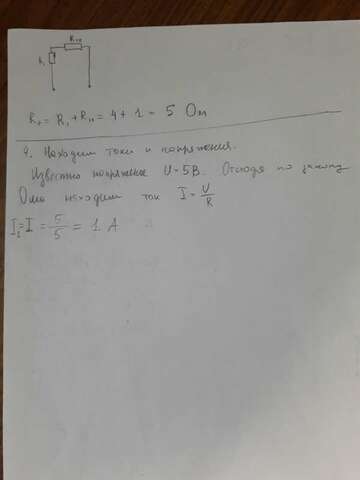 R₁
R = R₁ + R = 4 + 1 = 5 Ом
4. Находим токи и напряжения.
Известно напряжение U = 5В. Отсюда по закону
Ома находим ток I = U/R
I₁ = I = 5/5 = 1 А